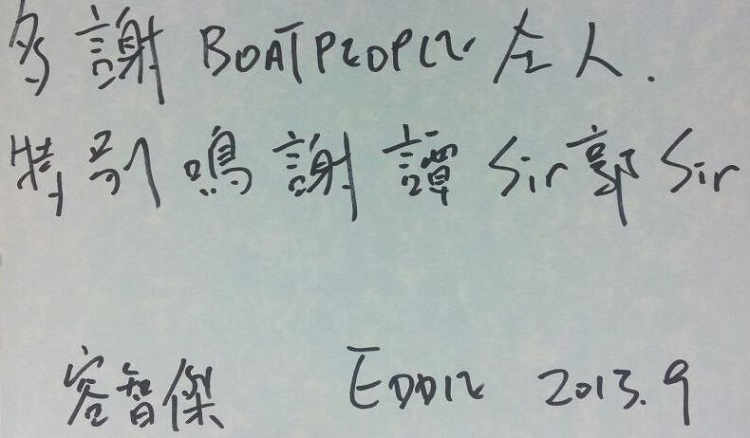 多謝 BOATPEOPLE 左人.
特別鳴謝譚 Sir 郭 Sir
容智傑 EDDIE 2013.9